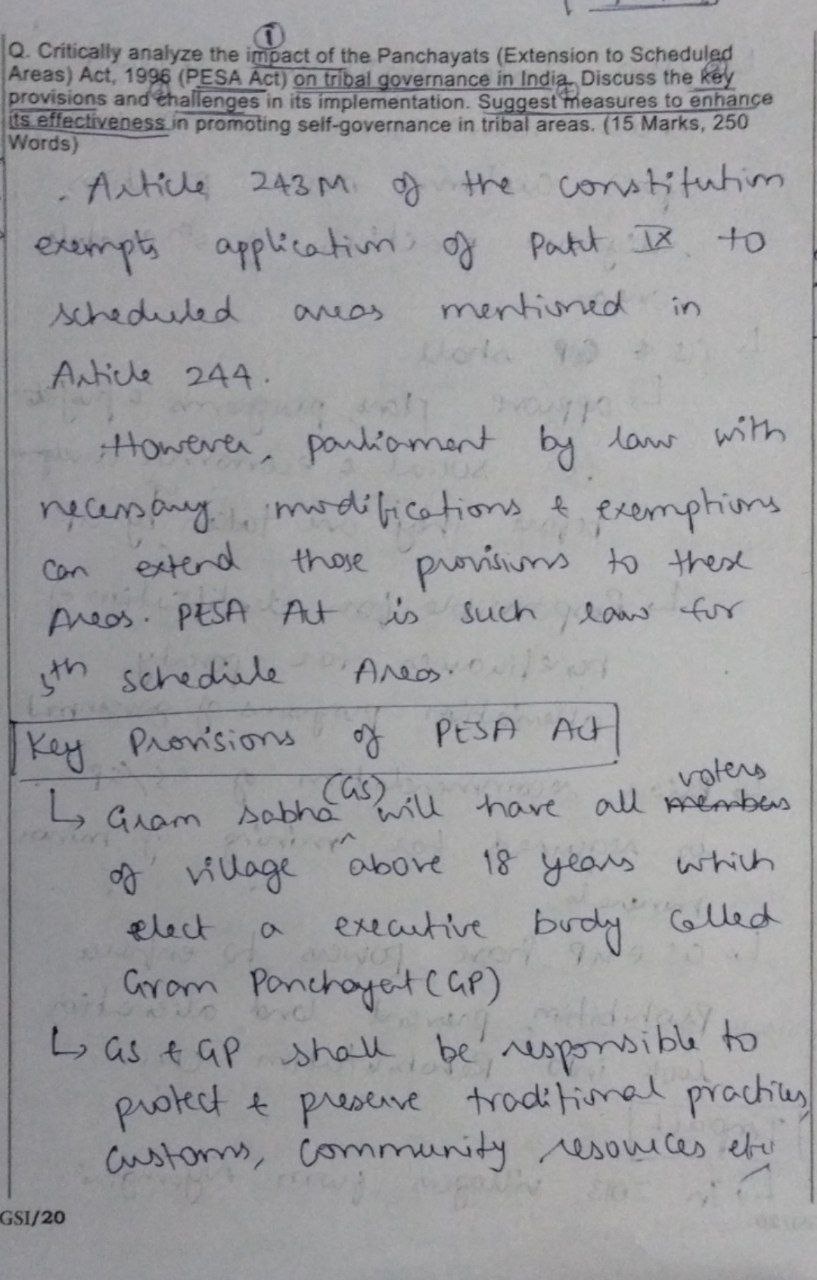 ①
Q. Critically analyze the impact of the Panchayats (Extension to Scheduled
Areas) Act, 1996 (PESA Act) on tribal governance in India. Discuss the key
provisions and challenges in its implementation. Suggest measures to enhance
its effectiveness in promoting self-governance in tribal areas. (15 Marks, 250
Words)
. Article 243M of the constitution
exempts application of Patrt IX to
scheduled areas mentioned in
Article 244.
However, parliament by law with
necessary modifications & exemptions
can extend those provisions to these
Areas. PESA Act is such law for
5th schedule Areas.
Key Provisions of PESA Act
↳ Gram sabha (GS) will have all members voters
of village above 18 years which
elect a executive body called
Gram Panchayat (GP)
↳ GS & GP shall be responsible to
protect & preserve traditional practices,
customs, community resources etc
GSI/20